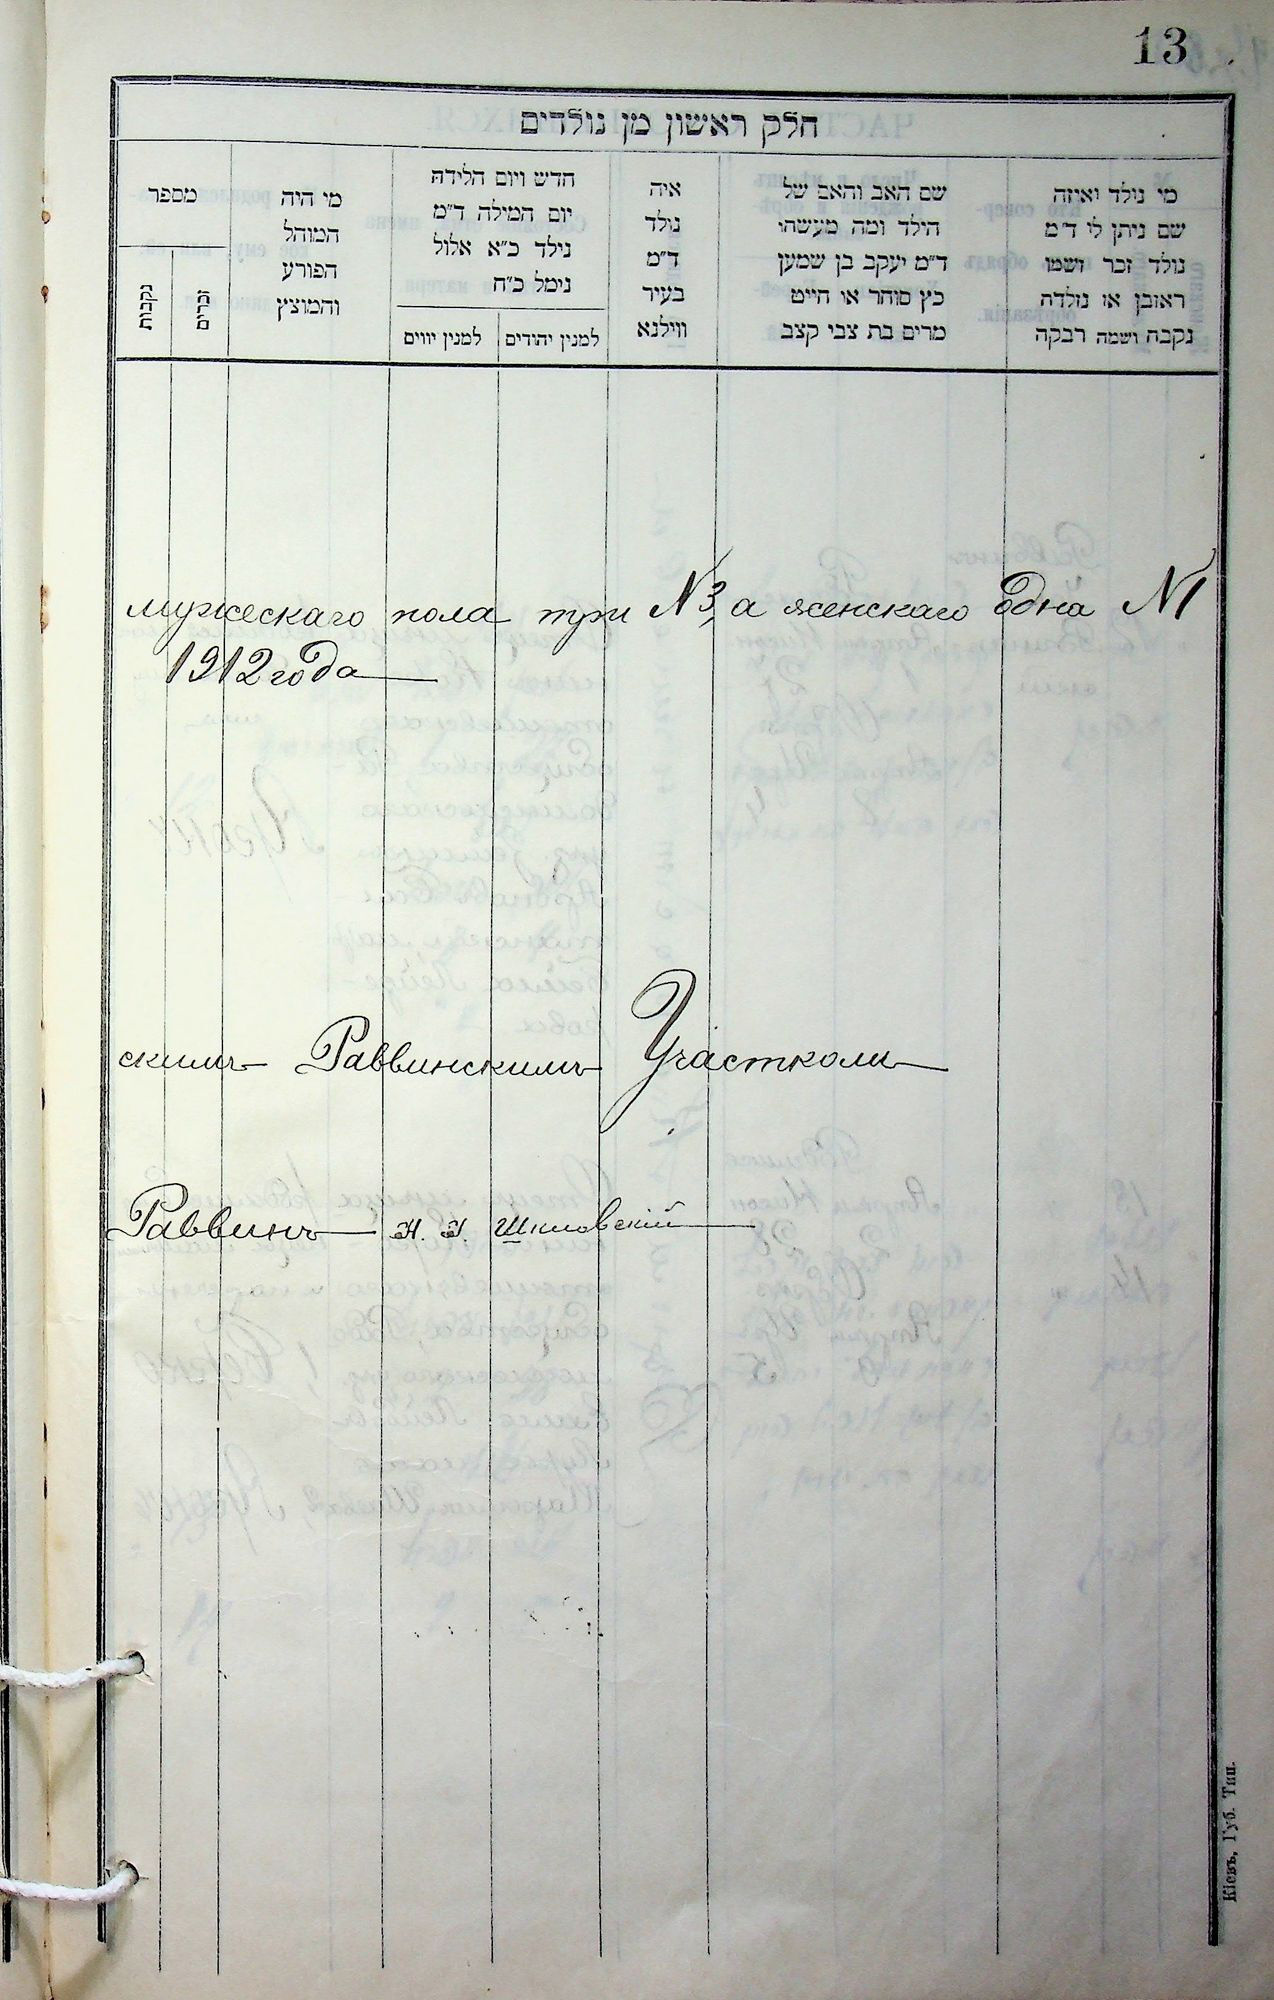 13
חלק ראשון מן נולדים
מי נולד ואיזה
שם ניתן לו ד״מ
נולד זכר ושמו
ראובן או נולדה
נקבה ושמה רבקה
שם האב והאם של
הילד ומה מעשהו
ד״מ יעקב בן שמעון
כץ סוחר או חייט
מרים בת צבי קצב
איה
נולד
ד״מ
בעיר
ווילנא
חדש ויום הלידה
יום המילה ד״מ
נילד כ״א אלול
נימל כ״ח
למנין יהודים
למנין יווים
מי היה
המוהל
הפורע
והמוצץ
מספר
זכרים
נקבות
мужескаго пола три №3, а женскаго одна №1
1912 года
скимъ Раввинскимъ Участкомъ
Раввинъ Шкловскій
Кіевъ, Губ. Тип.